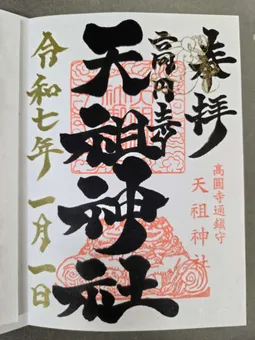 奉拝
高円寺
天祖神社
令和七年 一月一日
高圓寺通鎮守
天祖神社